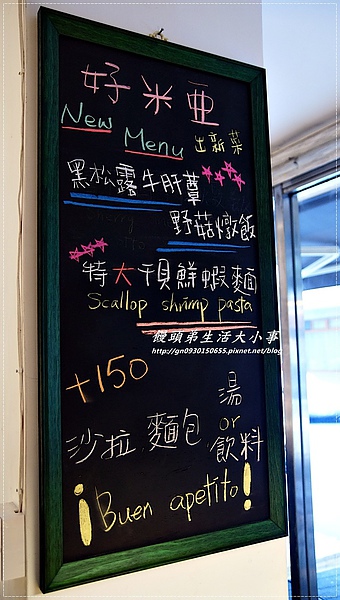 好米亚
New
Menu 出新菜
黑松露牛肝蕈
野菇燉飯
特大干貝鮮蝦麵
Scallop shrimp pasta
饅頭弟生活大小事
http://gn0930150655.pixnet.net/blog
+150
沙拉 麵包 湯 or 飲料
¡Buen apetito!